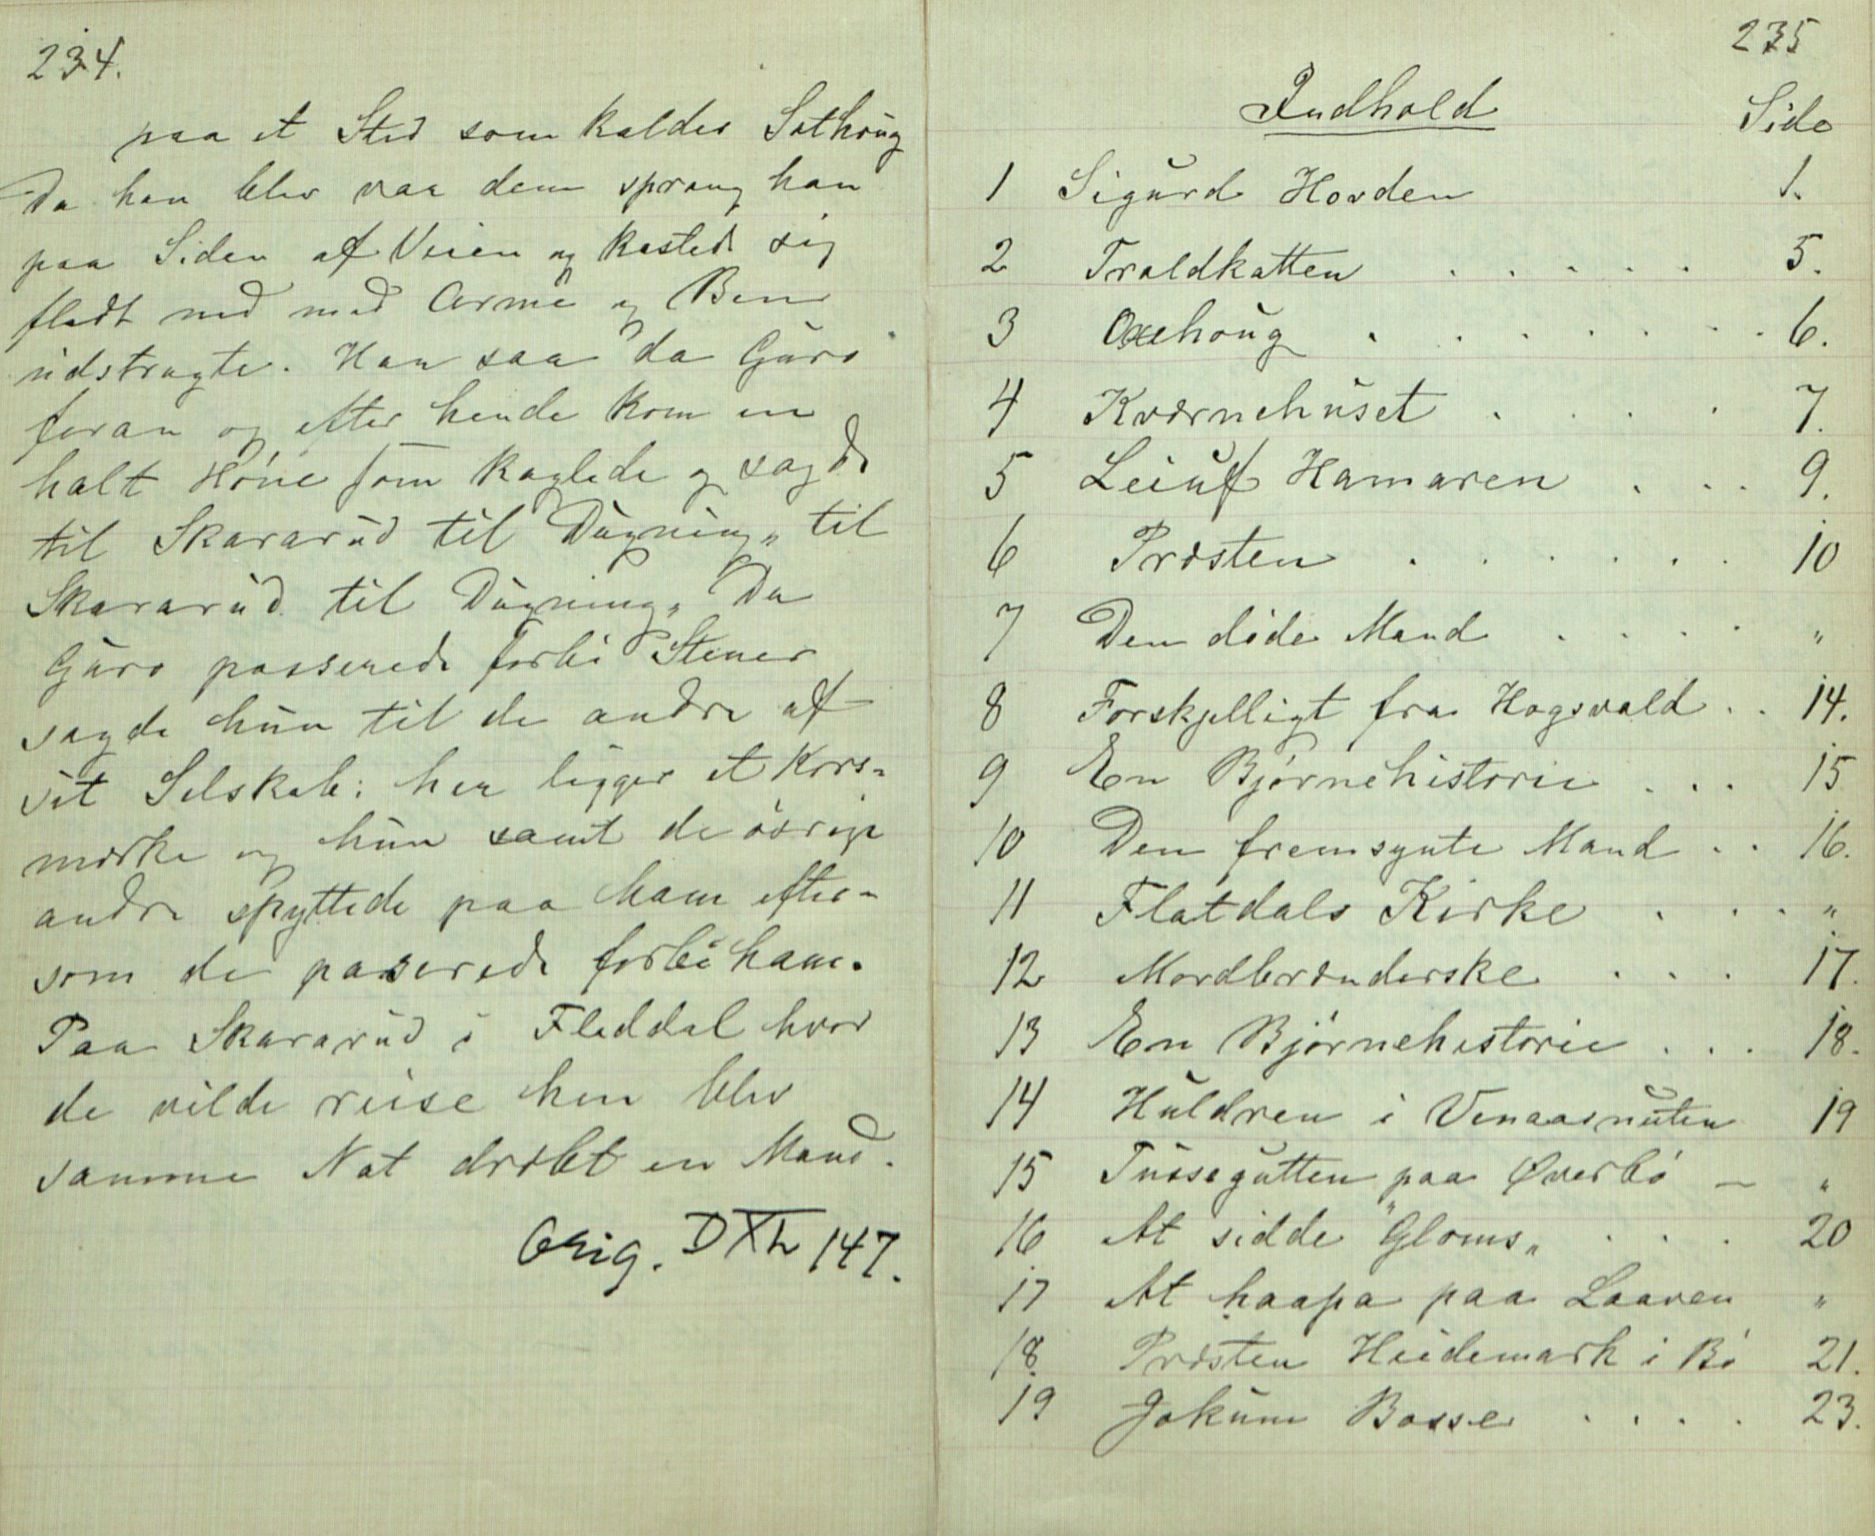 234.
paa et Sted som kaldes Sathoug
Da han blev vaa dem sprang han
paa Siden af Veien og kasted sig
fladt ned med Arme og Ben
udstragte. Han saa da Guro
foran og efter hende kom en
halt Høne som kaglede og sagde
til Skararud til Dugning„ til
Skararud til Dugning„ Da
Guro passerede forbi Stener
sagde hun til de andre af
sit Selskab: her ligger et Kors-
mærke og hun samt de øvrige
andre spyttede paa ham efter-
som de paserede forbi ham.
Paa Skararud i Fladdal hvor
de vilde reise hen blev
samme Nat dræbt en Mand.
Orig. D 147.
235
Indhold Side
1 Sigurd Hovden 1.
2 Troldkatten . . . . . 5.
3 Oxehoug . . . . . . . 6.
4 Kværnehuset . . . . 7.
5 Leiuf Hamaren . . . 9.
6 Præsten . . . . . . 10
7 Den døde Mand . . . . „
8 Forskjelligt fra Hogsvald . . 14.
9 En Bjørnehistorie . . . 15
10 Den fremsynte Mand . . 16.
11 Flatdals Kirke . . . „
12 Mordbrænderske . . . 17.
13 En Bjørnehistorie . . . 18.
14 Huldren i Venaasnuten 19
15 Tussegutten paa Øverbø — „
16 At sidde "Gloms„ . . . 20
17 At haapa paa Laaven „
18. Præsten Heidemark i Bø 21.
19 Jokum Bosse . . . . 23.